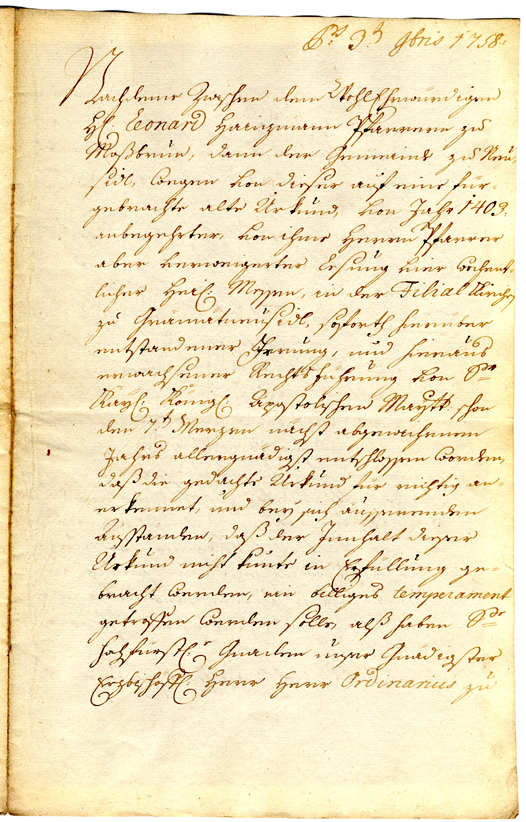 3t 9bris 1758.
Nachdeme Zwischen dem Wohl Ehrwürdigen
H: Leonard Harizmann Pfarrern zu
Moßbrun, dann der Gemeinde zu Neu-
sidl, wegen von dieser auf eine für-
gebrachte alte Urkund, von Jahr 1403.
anbegehrter, von ihme Herrn Pfarrer
aber verweigerter Lesung vier wochent-
licher Heyl: Messen, in der Filial Kirche
zu Gramatneusidl, soforth hierüber
entstandener Irrung, und hieraus
erwachsener Rechtsführung von Sr
Kayl: Königl: Apostolischen Maytt: schon
den 7t Merzen nächst abgewichenen
Jahrs allergnädigst entschlossen worden,
daß die gedachte Urkund für richtig an-
erkennet, und bey sich äusserenden
Anständen, daß der Innhalt dieser
Urkund nicht könte in Erfüllung ge-
bracht werden, ein billiges temperament
getroffen werden solle, alß haben Sr
hochfürstl: Gnaden unser Gnädigster
Erzbischoffl: Herr Herr Ordinarius zu